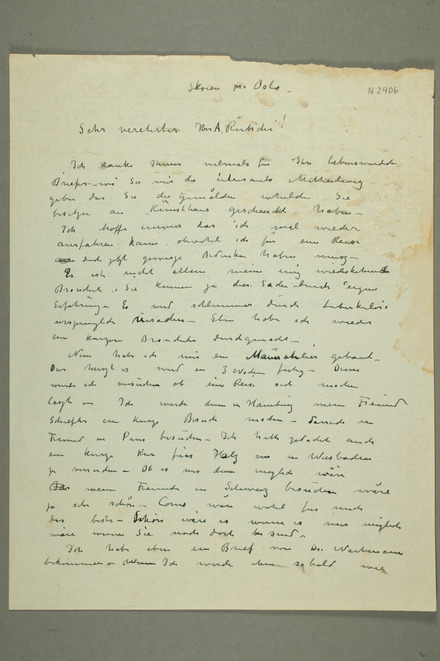 N 2406
Skøien pr. Oslo –
Sehr verehrter Herr A. Rütschi!
Ich danke Ihnen vielmals für Ihr liebenswürdiges
Brief – wo Sie mir die interesante Mitteilung
geben das Sie die Gemälden welche Sie
besitzen an Künsthaus geschenckt haben –
Ich hoffe immer das ich mal wieder
ausfahren kann obwohl ich für eine Reise
und jetzt gewisse Bedenken haben muss –
Es ist nicht allein meine ewig wiederkehrende
Bronchit. Sie kennen ja dies. Sache durch eigene
Erfahrung – Es wird schlimmer durch tuberkuløse
ursprunglich Ursachen – Eben habe ich wieder
ein Bronchitis durchgemacht –
Nun habe ich mir ein gebaut –
Das ist wird in 3 Wochen fertig – Dann
werde ich versuchen ob eine Reise sich machen
lasst – Ich werde dann in Hamburg mein Freund
Schiefler ein kurze Besuch machen – ein
Freund in Paris besuchen – Ich hatte gedacht auch
ein kurze Kur fürs Halz in Wiesbaden
zu versuchen – Ob es mir dann moglich wäre
meine Freunde in Schweiz besuchen wäre
ja sehr schön – Como, wäre wohl für mich
das beste – Schön wäre es wenn es mir möglich
wäre wenn Sie noch dort sind –
Ich habe eben ein Brief von Dr. Wartmann
bekommen – Ich werde ihm sobald wie